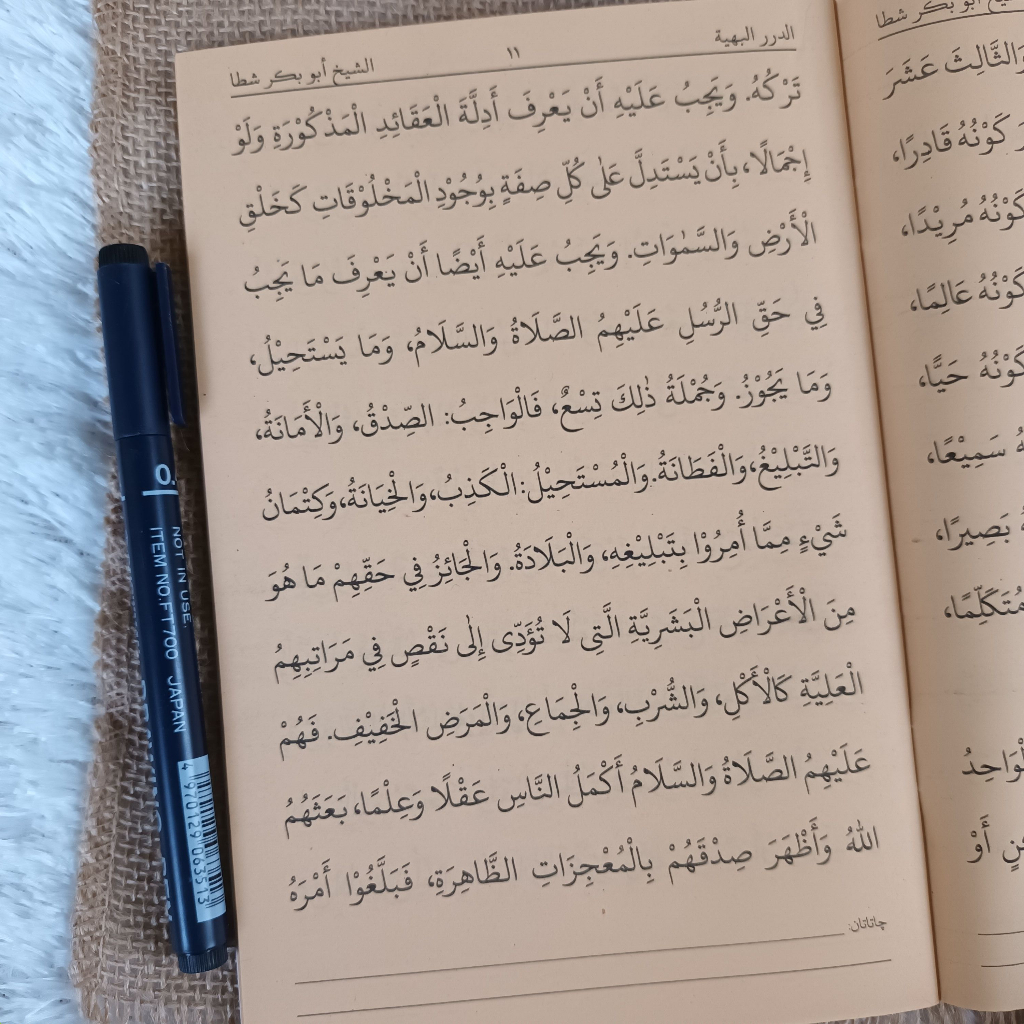 الدرر البهية
١١
الشيخ أبو بكر شطا
تَرْكُهُ. وَيَجِبُ عَلَيْهِ أَنْ يَعْرِفَ أَدِلَّةَ الْعَقَائِدِ الْمَذْكُوْرَةِ وَلَوْ
إِجْمَالًا، بِأَنْ يَسْتَدِلَّ عَلٰى كُلِّ صِفَةٍ بِوُجُوْدِ الْمَخْلُوْقَاتِ كَخَلْقِ
الْأَرْضِ وَالسَّمٰوَاتِ. وَيَجِبُ عَلَيْهِ أَيْضًا أَنْ يَعْرِفَ مَا يَجِبُ
فِي حَقِّ الرُّسُلِ عَلَيْهِمُ الصَّلَاةُ وَالسَّلَامُ، وَمَا يَسْتَحِيْلُ،
وَمَا يَجُوْزُ. وَجُمْلَةُ ذٰلِكَ تِسْعٌ، فَالْوَاجِبُ: الصِّدْقُ، وَالْأَمَانَةُ،
وَالتَّبْلِيْغُ، وَالْفَطَانَةُ. وَالْمُسْتَحِيْلُ: الْكَذِبُ، وَالْخِيَانَةُ، وَكِتْمَانُ
شَيْءٍ مِمَّا أُمِرُوْا بِتَبْلِيْغِهِ، وَالْبَلَادَةُ. وَالْجَائِزُ فِي حَقِّهِمْ مَا هُوَ
مِنَ الْأَعْرَاضِ الْبَشَرِيَّةِ الَّتِي لَا تُؤَدِّى إِلٰى نَقْصٍ فِي مَرَاتِبِهِمُ
الْعَلِيَّةِ كَالْأَكْلِ، وَالشُّرْبِ، وَالْجِمَاعِ، وَالْمَرَضِ الْخَفِيْفِ. فَهُمْ
عَلَيْهِمُ الصَّلَاةُ وَالسَّلَامُ أَكْمَلُ النَّاسِ عَقْلًا وَعِلْمًا، بَعَثَهُمُ
اللهُ وَأَظْهَرَ صِدْقَهُمْ بِالْمُعْجِزَاتِ الظَّاهِرَةِ، فَبَلَّغُوْا أَمْرَهُ
چاتاتان:
الشيخ أبو بكر شطا
وَالثَّالِثَ عَشَرَ
كَوْنُهُ قَادِرًا،
كَوْنُهُ مُرِيْدًا،
كَوْنُهُ عَالِمًا،
كَوْنُهُ حَيًّا،
سَمِيْعًا،
بَصِيرًا،
مُتَكَلِّمًا،
الْوَاحِدُ
أَوْ
01
NOT IN USE.
ITEM NO.FT700 JAPAN
4 970129 063513